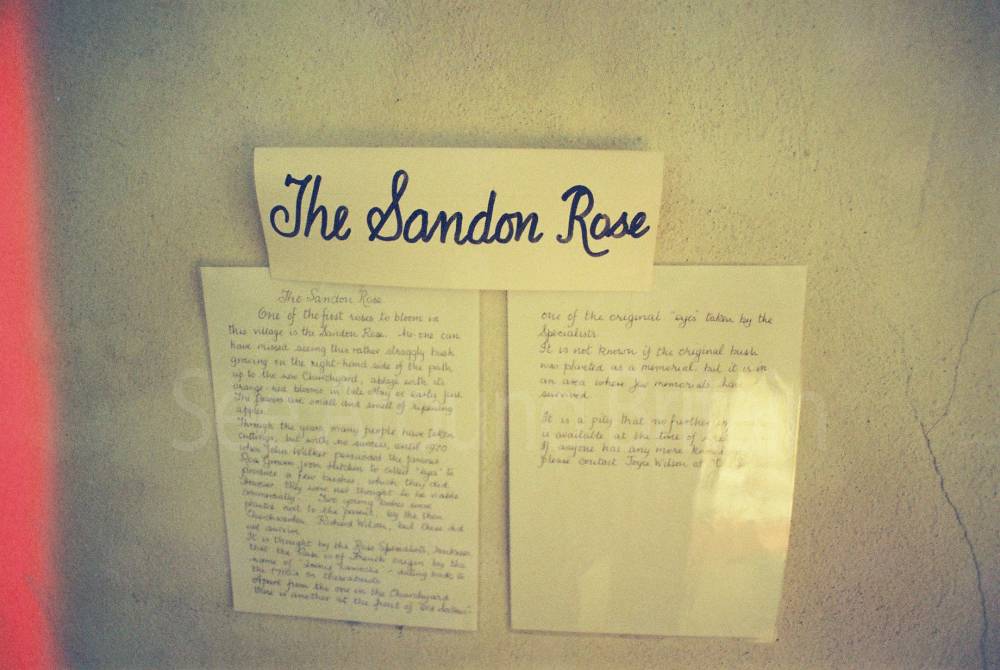 The Sandon Rose
The Sandon Rose
One of the first roses to bloom in
this village is the Sandon Rose. No-one can
have missed seeing this rather straggly bush
growing on the right-hand side of the path
up to the new Churchyard, ablaze with its
orange-red blooms in late May or early June
The flowers are small and smell of ripening
apples.
Through the years many people have taken
cuttings, but with no success, until 1970
when John Walker persuaded the famous
Rose Grower from Hitchin to collect "eyes" to
produce a few bushes, which they did.
However they were not thought to be viable
commercially. Two young bushes were
planted next to the parent, by the then
Churchwarden Richard Wilson, but these did
not survive.
It is thought by the Rose Specialists,
that the Rose is of French origin by the
name of - dating back to
the 1700's or thereabouts.
Apart from the one in the Churchyard
there is another at the front of
one of the original "eyes" taken by the
Specialists.
It is not known if the original bush
was planted as a memorial, but it is in
an area where few memorials have
survived.
It is a pity that no further
is available at the time of
If anyone has any more
please contact Joyce Wilson at